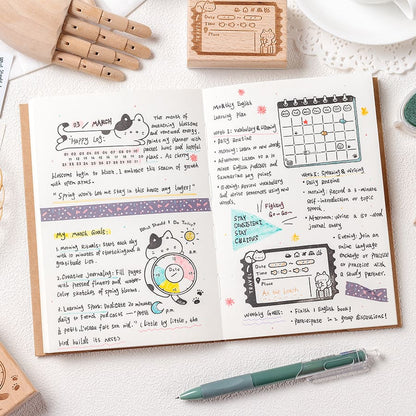 03 / MARCH
Happy Log:
The month of
awakening blossoms
and renewed energy.
paints my planner with
pocket hand and hopeful
plans. As cherry
blossoms begin to bloom. I embrace the season of growth
with open arms.
"Spring won't let me stay in this house any longer!"
My March Goals:
1. Morning Rituals: Start each day
with 10 minutes of stretching and a
gratitude list.
2. Creative Journaling: Fill pages
with pressed flowers and
color sketches of spring blooms.
3. Learning Spark: Dedicate 20 minutes
daily to French podcasts — "petit
à petit, l'oiseau fait son nid." (Little by little, the
bird builds its nest)
What Should I Do Today?
Date
a.m.
p.m.
Date
Time
Place
Monthly English
Learning Plan
Week 1: Vocabulary & Listening
• Daily Routine
• Morning: Learn 10 new words
• Afternoon: Listen to a 10
minute English podcast and
summarize key points
• Evening: Review vocabulary
and write sentences using new
words.
STAY
CONSISTENT
STAY
CURIOUS
Fighting
Go — Go —
Week 2: Speaking & Writing
• Daily Routine
• Morning: Record a 3-minute
self-introduction or topic
speech.
• Afternoon: Write a 50-word
journal entry
• Evening: Join an
online language
exchange or practice
or practice with
a study partner.
TRAVEL
Date
Time
Place
At the beach
Weekly Goals:
• Finish 1 English book!
• Participate in 2 group discussions!